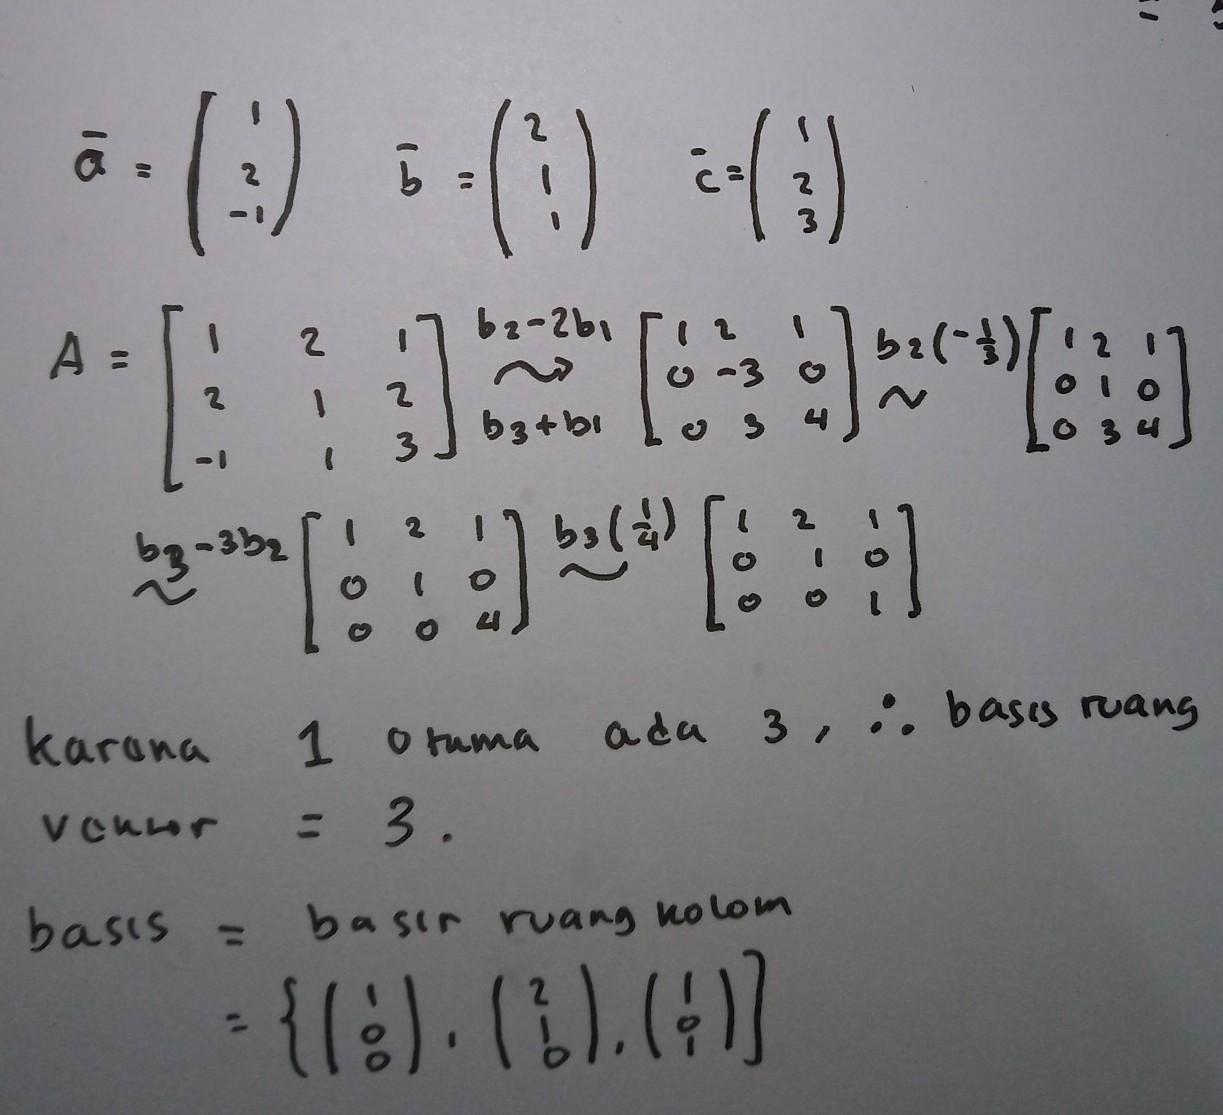 ā = (1 2 -1) b̄ = (2 1 1) c̄ = (1 2 3)
A = [1 2 1; 2 1 2; -1 1 3] b2-2b1 b3+b1 ⤳ [1 2 1; 0 -3 0; 0 3 4] b2(-1/3) ~ [1 2 1; 0 1 0; 0 3 4]
b3-3b2 ~ [1 2 1; 0 1 0; 0 0 4] b3(1/4) ~ [1 2 1; 0 1 0; 0 0 1]
karena 1 utama ada 3, ∴ basis ruang
vektor = 3.
basis = basis ruang kolom
= {(1 0 0), (2 1 0), (1 0 1)}